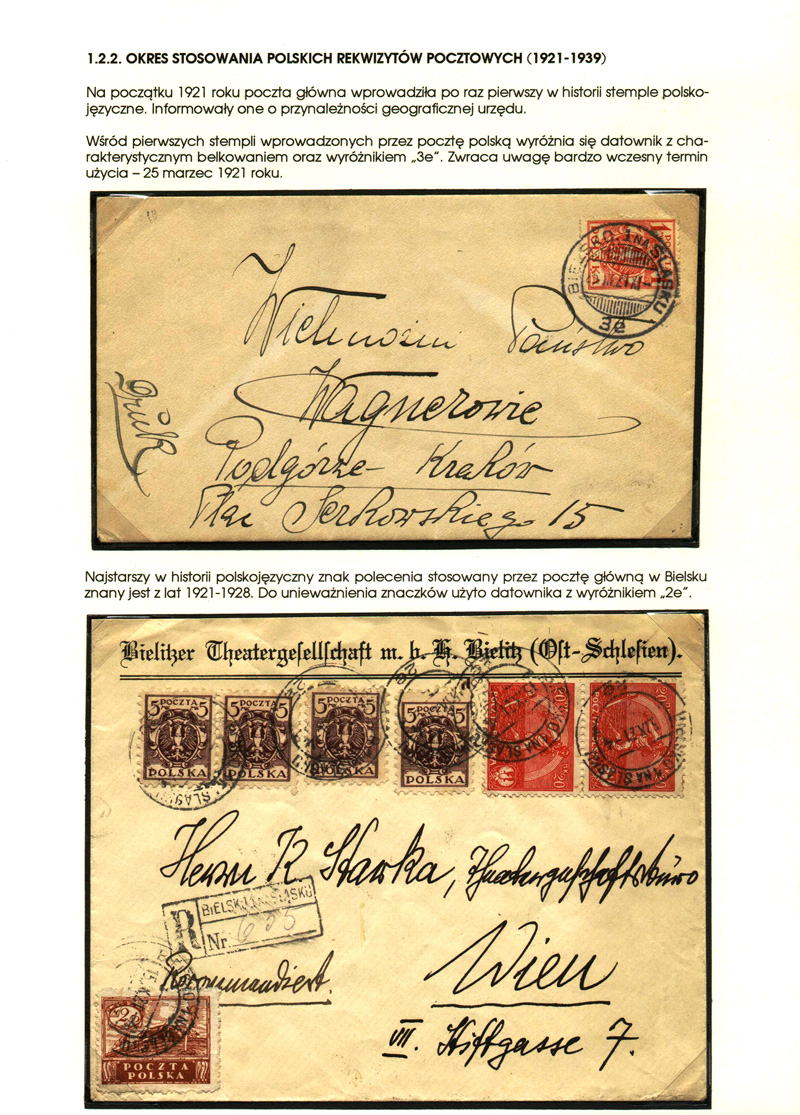 1.2.2. OKRES STOSOWANIA POLSKICH REKWIZYTÓW POCZTOWYCH (1921-1939)
Na początku 1921 roku poczta główna wprowadziła po raz pierwszy w historii stemple polsko-
języczne. Informowały one o przynależności geograficznej urzędu.
Wśród pierwszych stempli wprowadzonych przez pocztę polską wyróżnia się datownik z cha-
rakterystycznym belkowaniem oraz wyróżnikiem „3e”. Zwraca uwagę bardzo wczesny termin
użycia – 25 marzec 1921 roku.
BIELSKO 1 NA ŚLĄSKU
3e
Wielmożni Państwo
Wagnerowie
Druk
Podgórze - Kraków
Plac Serkowskiego 15
Najstarszy w historii polskojęzyczny znak polecenia stosowany przez pocztę główną w Bielsku
znany jest z lat 1921-1928. Do unieważnienia znaczków użyto datownika z wyróżnikiem „2e”.
Bielitzer Theatergesellschaft m. b. H. Bielitz (Ost-Schlesien).
5 POCZTA 5
POLSKA
5 POCZTA 5
POLSKA
5 POCZTA 5
POLSKA
5 POCZTA 5
POLSKA
20
20
Herrn K. Starka, Theatergeschäftsbüro
R
BIELSKO 1 NA ŚLĄSKU
Nr. 635
Wien
Rekommandiert.
VII. Stiftgasse 7.
POCZTA
POLSKA